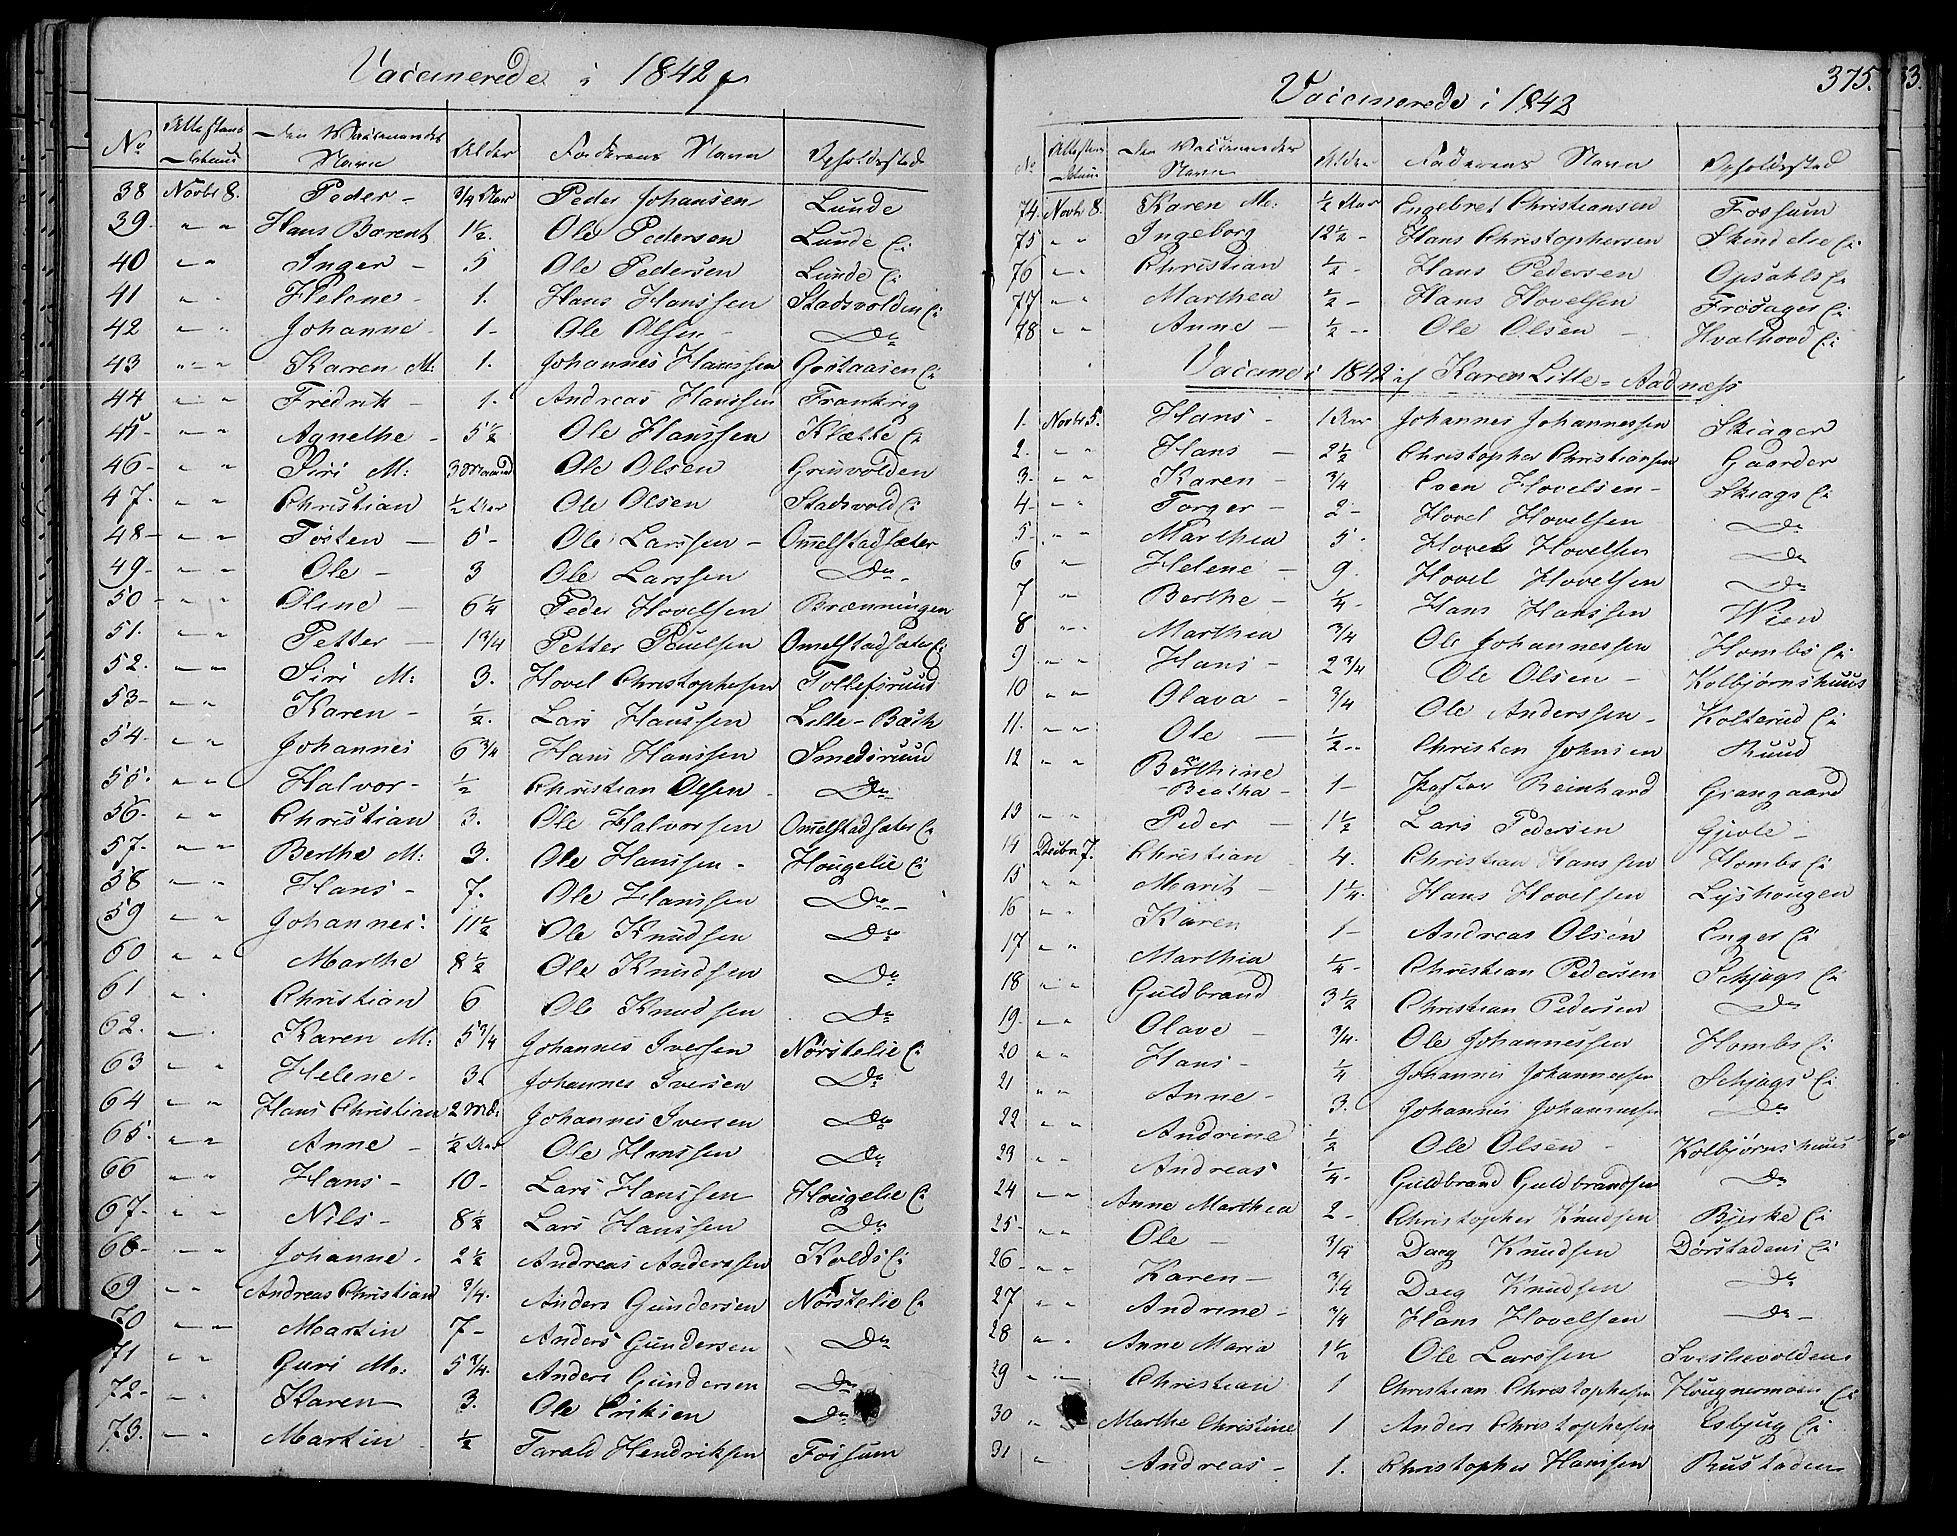 Vaccinerede i 1842
No | Attestens Datum | Den Vaccineredes Navn | Alder | Faderens Navn | Opholdssted
38 Novbr 8. Peder - 3/4 Aar Peder Johansen Lunde
39. " " Hans Barent 1½. Ole Pedersen Lunde Ei
40 " " Inger - 5 Ole Pedersen Lunde Ei
41 " " Helene - 1. Hans Hanssen Stadsvolden Ei
42 " " Johanne - 1 - Ole Olsen - Do
43 " " Karen M: 1. Johannes Hanssen Ei
44 " " Fredrik - 1. Andreas Hanssen Frankrig
45 - " " Agnethe - 5½ Ole Hanssen Klætte Ei
46 - " " Siri M: 3 Maaned Ole Olsen Grinvolden
47. " " Christian ½ Aar Ole Olsen Stadsvold Ei
48 - " " Tosten - 5 - Ole Larssen - Omelstadsæter
49 - " " Ole - 3 Ole Larssen Do
50 - " " Oline - 6¼ Peder Hovelssen Brænningen
51. " " Petter - 1 3/4 Petter Paulsen Omelstadsæter Ei
52. " " Siri M: 3. Hovel Christophersen Tollefsruud
53 - " " Karen - ½. Lars Hanssen Lille-Bæch
54. " " Johannes 6 3/4 Hans Hanssen Smedsruud
55. " " Halvor - ½ Christian Olsen - Do
56. " " Christian 3. Ole Halvorsen Omelstadsæter Ei
57. " " Berthe M: 3. Ole Hanssen - Hougelie Ei
58 " " Hans - 7. Ole Hanssen Do
59 " " Johannes: 11½ Ole Knudsen Do
60 " " Marthe 8½ Ole Knudsen Do
61 " " Christian 6 Ole Knudsen Do
62. " " Karen M: 5 3/4 Johannes Iversen Nørstelie Ei
63 " " Helene - 3. Johannes Iversen Do
64 " " Hans Christian 2 Md. Johannes Iversen Do
65. " " Anne - ½ Aar Ole Hanssen Do
66 " " Hans - 10 - Lars Hanssen Hougelie Ei
67. " " Nils - 8½ Lars Hanssen Do
68 - " " Johanne - 2½ Andreas Anderssen Kolds Ei
69 " " Andreas Christian 3/4. Anders Gundersen Nørstelie Ei
70 " " Martin 7 - Anders Gundersen Do
71 " " Guri M: 5 3/4. Anders Gundersen Do
72 - " " Karen 3. Ole Eriksen Do
73. " " Martin ½ Tarald Hendriksen Fossum
Vaccinerede i 1842
375.
No | Attestens Datum | Den Vaccineredes Navn | Alder | Faderens Navn | Opholdssted
74. Novbr 8. Karen M: ½ Aar Engebret Christiansen Fossum
75 " " Ingeborg 12½ - Hans Christophersen Ei
76 " " Christian ½ - Hans Pedersen Opsahls Ei
77 " " Marthea ½ - Hans Hovelsen Frøsager Ei
78 " " Anne - ½ - Ole Olsen - Hvalhovd Ei
Vaccined i 1842 af Karen Lille-Aadnæss
1. Novbr 5. Hans - 13 Aar Johannes Johannessen Skiager
2. " " Hans - 2½ Christopher Christiansen Gaarder
3. " " Karen - 3/4 Even Hovelsen - Skiags Ei
4 - " " Torger - 2 - Hovel Hovelsen Do
5 - " " Marthea 5. Hovel Hovelsen Do
6 " Helene - 9. Hovel Hovelsen Do
7 " Berthe - ¼ - Hans Hanssen Wien
8 " " Marthea 3/4 Ole Johannessen Hombs Ei
9 " " Hans - 2 3/4 Ole Olsen - Kolbjørnshuus
10 " " Olava - 3/4 Ole Anderssen - Kolterud Ei
11. " " Ole - ½ - Christen Johnsen Ruud
12 " " Berthine Beatha - 1 - Pastor Reinhard Grangaard
13 " " Peder - 1½ Lars Pedersen Gjevle -
14 Decbr 7. Christian 4. Christian Hanssen Hombs Ei
15 " " Marit - 1¼. Hans Hovelsen Lyshougen
16 " " Karen 1 - Andreas Olsen Enger Ei
17 " " Marthia ¼ - Christian Pedersen Schjags Ei
18 " " Guldbrand 3½ Christian Pedersen Do
19. " " Olave - 3/4. Ole Johannessen Hombs Ei
20 " " Hans - ¼ Johannes Johannessen Schjags Ei
21 " " Anne - 3. Johannes Johannessen Do
22 " " Andrine ½ Ole Olsen - Kolbjørnshuus
23 " " Andreas ¼ - Guldbrand Guldbrandsen Do
24 " " Anne Marthea 2 - Christopher Knudsen Bjerke Ei
25 - " " Ole - 3/4 Dag Knudsen Dørstadens Ei
26 - " " Karen - 3/4 Dag Knudsen Do
27 " " Andrine - 3/4 Hans Hovelsen Do -
28 " " Anne Maria 1½ Ole Larssen
29 " " Christian 1 Christian Christophersen Ei
30 " Marthe Christine 1 Anders Christophersen Esbjug Ei
31 " Andreas - 1. Christopher Hanssen Rustaden